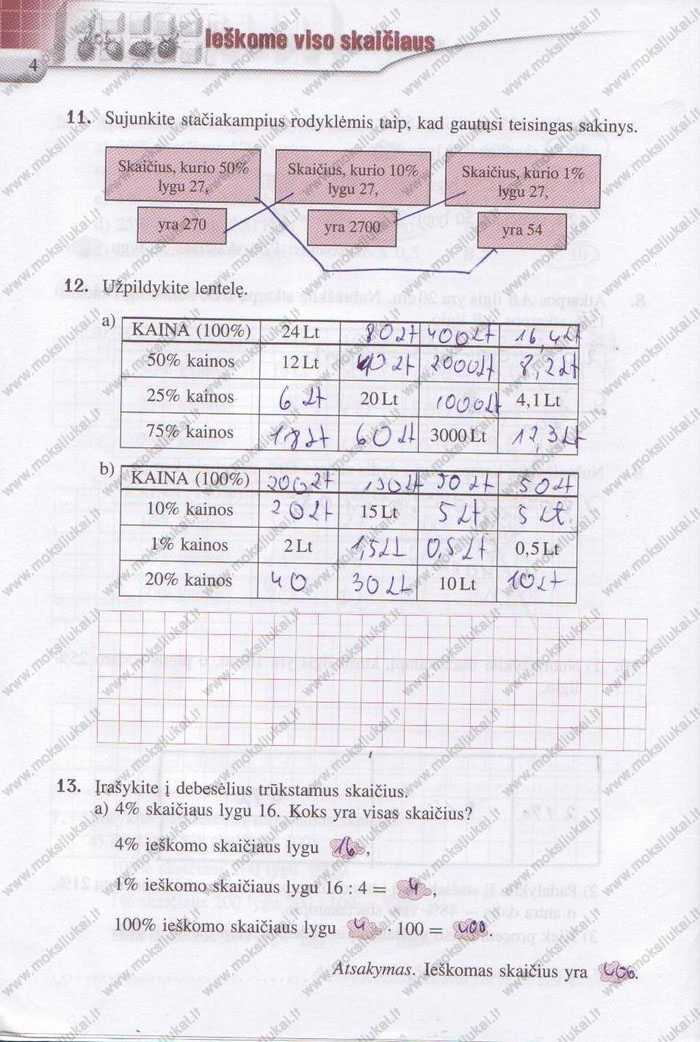 Ieškome viso skaičiaus
4
11. Sujunkite stačiakampius rodyklėmis taip, kad gautųsi teisingas sakinys.
Skaičius, kurio 50% lygu 27,
Skaičius, kurio 10% lygu 27,
Skaičius, kurio 1% lygu 27,
yra 270
yra 2700
yra 54
12. Užpildykite lentelę.
a)
KAINA (100%) 24 Lt 80 Lt 4000 Lt 16,4 Lt
50% kainos 12 Lt 40 Lt 2000 Lt 8,2 Lt
25% kainos 6 Lt 20 Lt 1000 Lt 4,1 Lt
75% kainos 18 Lt 60 Lt 3000 Lt 12,3 Lt
b)
KAINA (100%) 200 Lt 150 Lt 50 Lt 50 Lt
10% kainos 20 Lt 15 Lt 5 Lt 5 Lt
1% kainos 2 Lt 1,5 Lt 0,5 Lt 0,5 Lt
20% kainos 40 30 Lt 10 Lt 10 Lt
13. Įrašykite į debesėlius trūkstamus skaičius.
a) 4% skaičiaus lygu 16. Koks yra visas skaičius?
4% ieškomo skaičiaus lygu 16,
1% ieškomo skaičiaus lygu 16 : 4 = 4,
100% ieškomo skaičiaus lygu 4 · 100 = 400
Atsakymas. Ieškomas skaičius yra 400.
www.moksliukai.lt